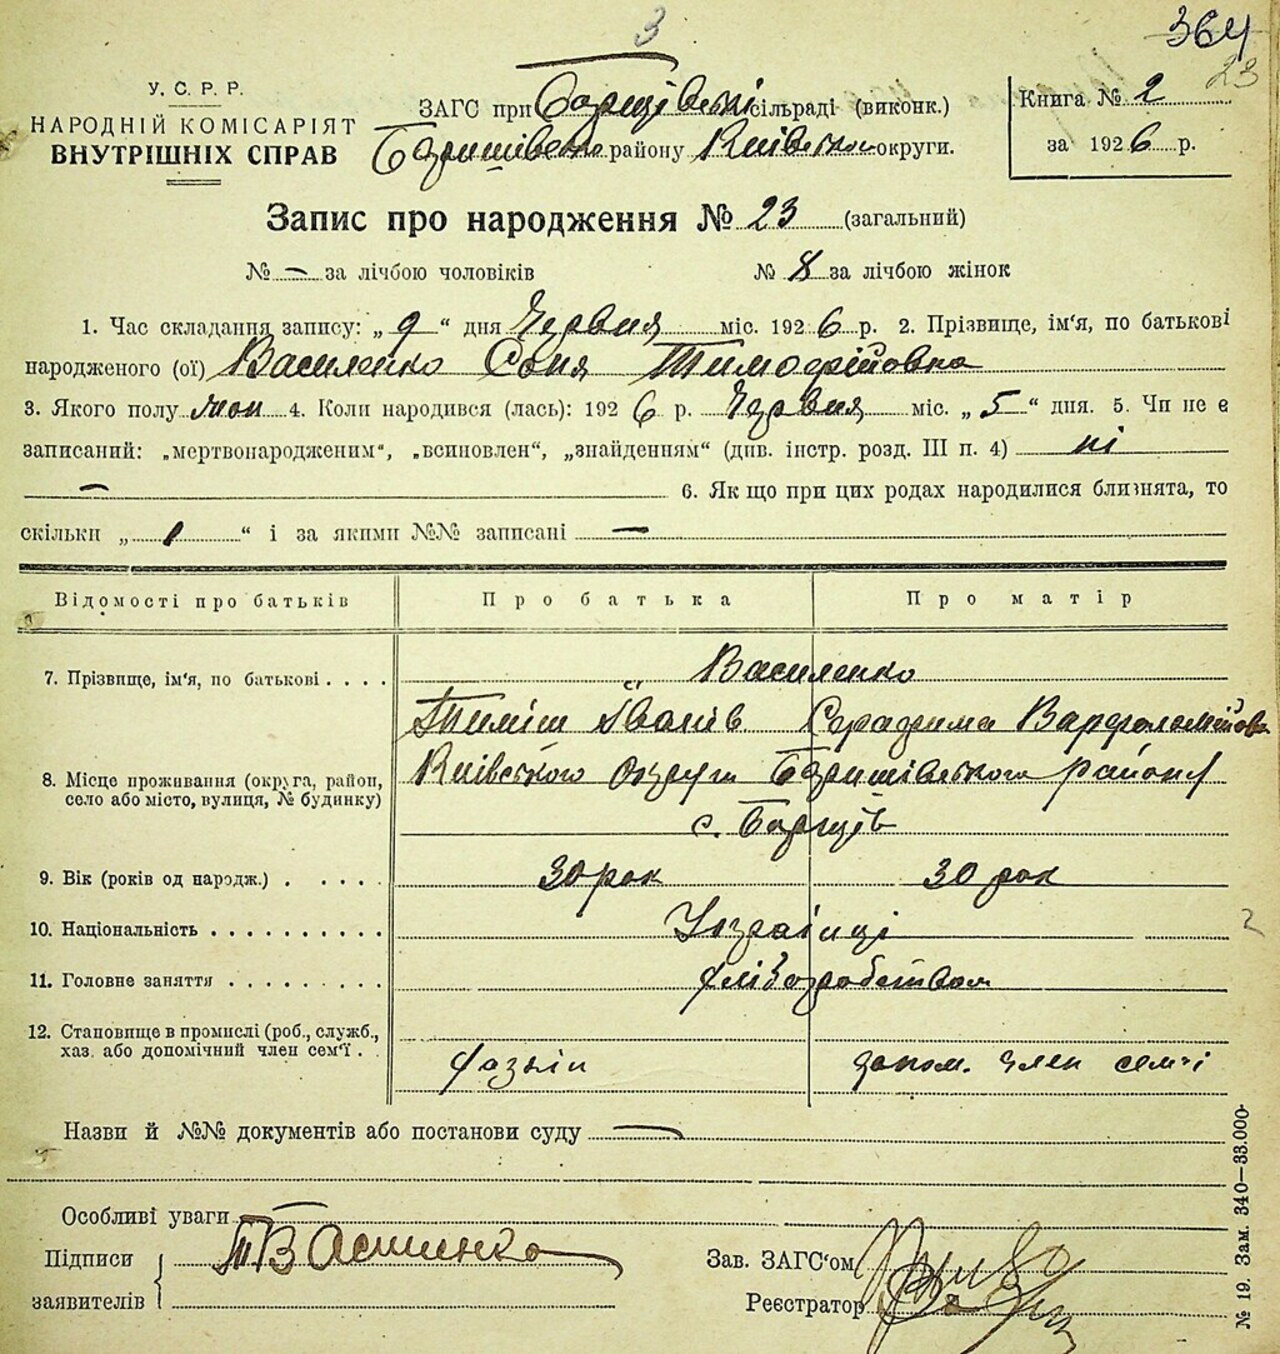 3
364
23
У. С. Р. Р.
НАРОДНІЙ КОМІСАРІЯТ
ВНУТРІШНІХ СПРАВ
ЗАГС при Борщівські сільраді (виконк.)
Баришівсько району Київсько округи.
Книга № 2
за 1926 р.
Запис про народження № 23 (загальний)
№ — за лічбою чоловіків
№ 8 за лічбою жінок
1. Час складання запису: „ 9 “ дня Червня міс. 1926 р. 2. Прізвище, ім'я, по батькові
народженого (ої) Василенко Соня Тимофійовна
3. Якого полу жон 4. Коли народився (лась): 1926 р. Червня міс. „ 5 “ дня. 5. Чи не є
записаний: „мертвонародженим“, „всиновлен“, „знайденням“ (див. інстр. розд. III п. 4) ні
— 6. Як що при цих родах народилися близнята, то
скільки „ 1 “ і за якими №№ записані —
Відомості про батьків
Про батька
Про матір
7. Прізвище, ім'я, по батькові . . . .
Василенко
Тиміш Іванів
Серафима Варфоломійовна
8. Місце проживання (округа, район,
село або місто, вулиця, № будинку)
Київського округи Баришівського району
с. Борщів
9. Вік (років од народж.) . . . . .
30 рок
30 рок
10. Національність . . . . . . . . . .
Українці
11. Головне заняття . . . . . . . . .
хліборобством
12. Становище в промислі (роб., служб.,
хаз. або допомічний член сем'ї . .
хазяїн
допом. член семʼі
Назви й №№ документів або постанови суду —
Особливі уваги —
Підписи
заявителів
Т Василенко
Зав. ЗАГС'ом
Реєстратор
№ 19. Зам. 340—33.000